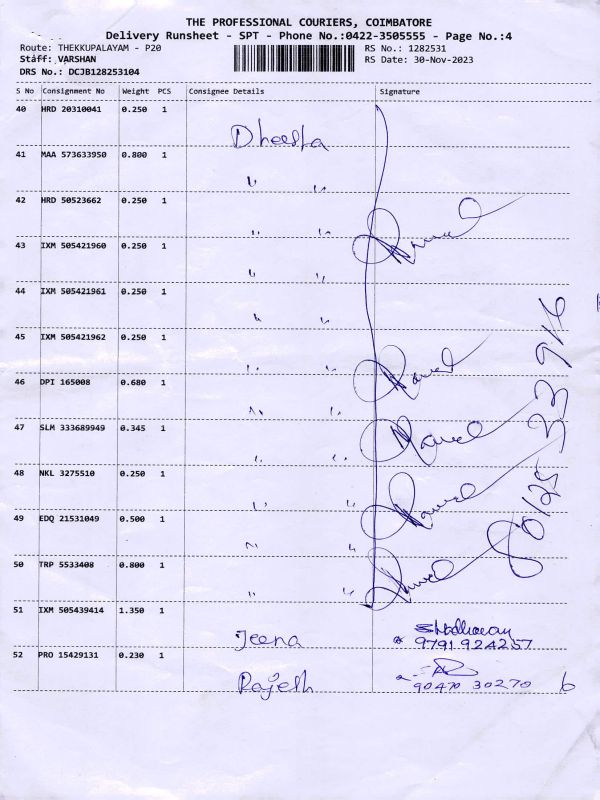 THE PROFESSIONAL COURIERS, COIMBATORE
Delivery Runsheet - SPT - Phone No.:0422-3505555 - Page No.:4
Route: THEKKUPALAYAM - P20 RS No.: 1282531
Staff: VARSHAN RS Date: 30-Nov-2023
DRS No.: DCJB128253104
S No Consignment No Weight PCS Consignee Details Signature
40 HRD 20310041 0.250 1
Dheesha
41 MAA 573633950 0.800 1
" "
42 HRD 50523662 0.250 1
" "
43 IXM 505421960 0.250 1
" "
44 IXM 505421961 0.250 1
" "
45 IXM 505421962 0.250 1
" "
46 DPI 165008 0.680 1
" "
47 SLM 333689949 0.345 1
" "
48 NKL 3275510 0.250 1
" "
49 EDQ 21531049 0.500 1
" "
50 TRP 5533408 0.800 1
" "
80125 33916
51 IXM 505439414 1.350 1
Jeena 9791924257
52 PRO 15429131 0.230 1
Rajesh 90470 30270 6